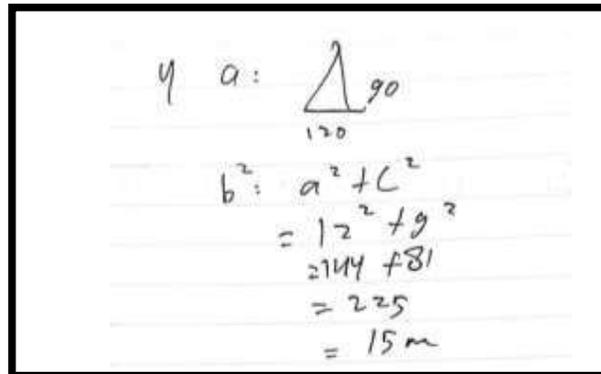 4 a:
90
120
b²: a² + c²
= 12² + 9²
= 144 + 81
= 225
= 15 m